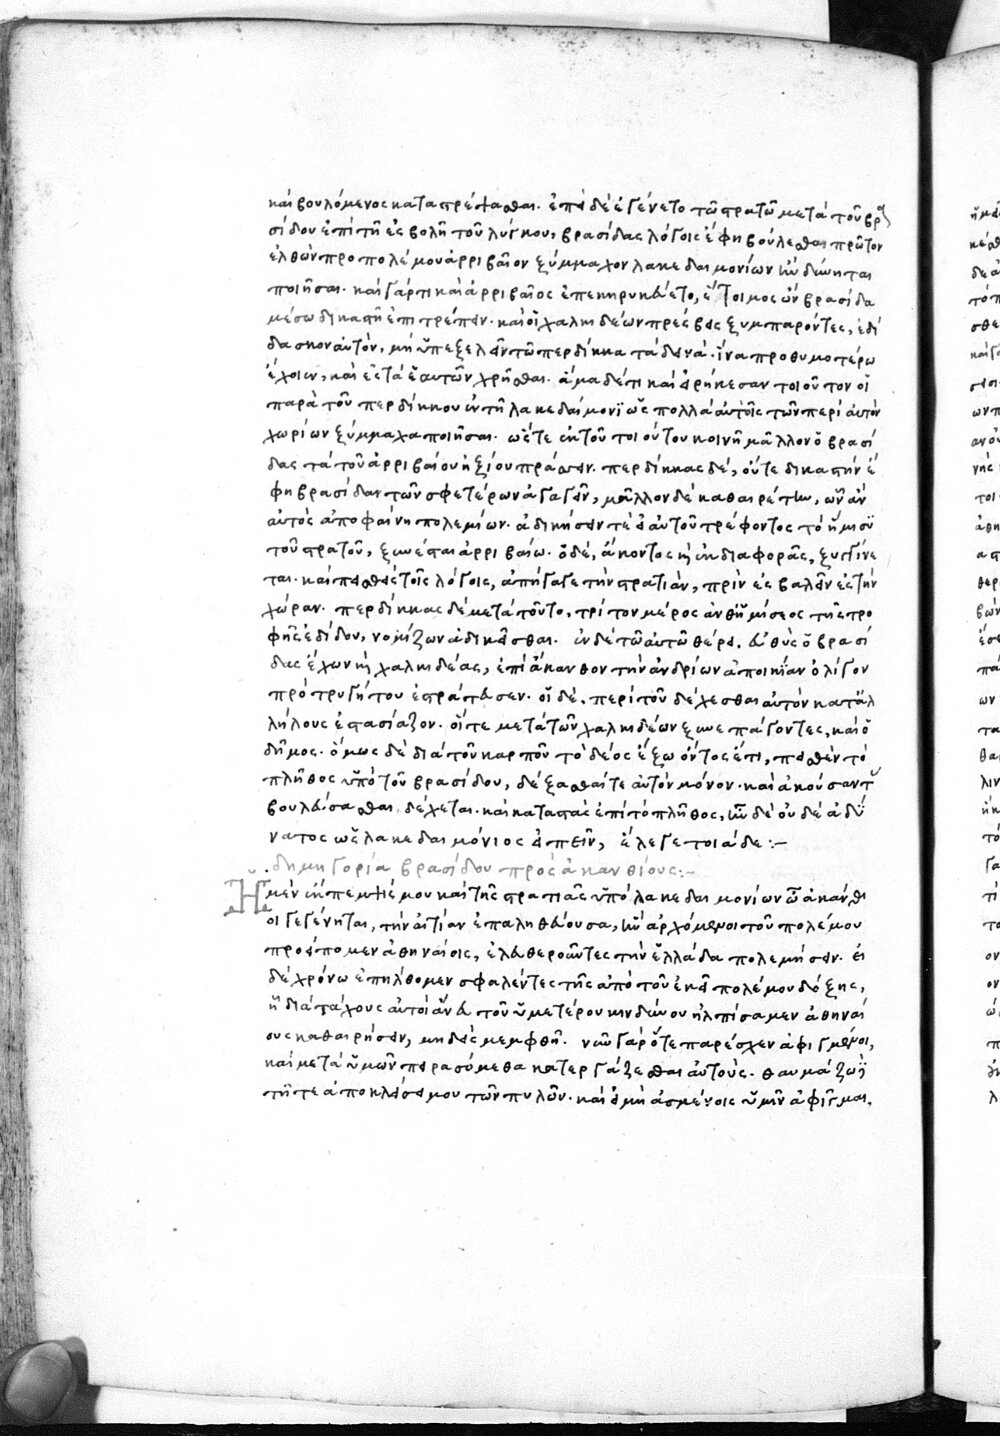 καὶ βουλόμενος καταστρέψασθαι. ἐπεὶ δὲ ἐγένετο τῶ στρατῶ μετὰ τοῦ βρα
σίδου ἐπὶ τῆ ἐσβολῆ τοῦ λύγκου, βρασίδας λόγοις ἔφη βούλεσθαι πρῶτον
ἐλθὼν πρὸ πολέμου ἀρριβαῖον ξύμμαχον λακεδαιμονίων ἢν δύνηται
ποιῆσαι. καὶ γάρ τι καὶ ἀρριβαῖος ἐπεκηρυκεύετο, ἕτοιμος ὢν βρασίδα
μέσω δικαστῆ ἐπιτρέπειν. καὶ οἱ χαλκιδέων πρέσβεις ξυμπαρόντες, ἐδί
δασκον αὐτὸν, μὴ ὑπεξελεῖν τῶ περδίκκα τὰ δεινά. ἵνα προθυμοτέρω
ἔχοιεν, καὶ ἐς τὰ ἑαυτῶν χρῆσθαι. ἅμα δέ τι καὶ εἰρήκεσαν τοιοῦτον οἱ
παρὰ τοῦ περδίκκου ἐν τῆ λακεδαίμονι ὡς πολλὰ αὐτοῖς τῶν περὶ αὐτὸν
χωρίων ξύμμαχα ποιῆσαι. ὥστε ἐκ τοῦ τοιούτου κοινῆ μᾶλλον ὁ βρασί
δας τὰ τοῦ ἀρριβαίου ἠξίου πράσσειν. περδίκκας δέ, οὔτε δικαστὴν ἔ
φη βρασίδαν τῶν σφετέρων ἀγαγεῖν, μᾶλλον δὲ καθαιρέτην, ὧν ἂν
αὐτὸς ἀποφαίνη πολεμίων. ἀδικήσειν τὲ εἰ αὐτοῦ τρέφοντος τὸ ἥμισυ
τοῦ στρατοῦ, ξυνέσται ἀρριβαίω. ὁ δέ, ἄκοντος καὶ ἐκ διαφορᾶς, ξυγγίνε
ται. καὶ πεισθεὶς τοῖς λόγοις, ἀπήγαγε τὴν στρατιὰν, πρὶν ἐσβαλεῖν ἐς τὴν
χώραν. περδίκκας δὲ μετὰ τοῦτο, τρίτον μέρος ἀνθ' ἡμίσεος τῆς τρο
φῆς ἐδίδου, νομίζων ἀδικεῖσθαι. ἐν δὲ τῶ αὐτῶ θέρει, εὐθὺς ὁ βρασί
δας ἔχων καὶ χαλκιδέας, ἐπὶ ἄκανθον τὴν ἀνδρίων ἀποικίαν ὀλίγον
πρὸ τρυγήτου ἐστράτευσεν. οἱ δὲ, περὶ τοῦ δέχεσθαι αὐτὸν κατ' ἀλ
λήλους ἐστασίαζον. οἵ τε μετὰ τῶν χαλκιδέων ξυνεπάγοντες, καὶ ὁ
δῆμος. ὅμως δὲ διὰ τοῦ καρποῦ τὸ δέος ἔξω ὄντος ἔτι, πεισθὲν τὸ
πλῆθος ὑπὸ τοῦ βρασίδου, δέξασθαί τε αὐτὸν μόνον. καὶ ἀκούσαντ
βουλεύσασθαι, δέχεται. καὶ καταστὰς ἐπὶ τὸ πλῆθος, ἦν δὲ οὐδὲ ἀδύ
νατος ὡς λακεδαιμόνιος εἰπεῖν, ἔλεγε τοιάδε :–
. δημηγορία βρασίδου πρὸς ἀκανθίους :–
Ἡ μὲν ἔκπεμψίς μου καὶ τῆς στρατιᾶς ὑπὸ λακεδαιμονίων ὦ ἀκάνθι
οι γεγένηται, τὴν αἰτίαν ἐπαληθεύουσα, ἣν ἀρχόμενοι τοῦ πολέμου
προείπομεν ἀθηναίοις, ἐλευθεροῦντες τὴν ἑλλάδα πολεμήσειν. εἰ
δὲ χρόνω ἐπήλθομεν σφαλέντες τῆς ἀπὸ τοῦ ἐκεῖ πολέμου δόξης,
ἧ διὰ τάχους αὐτοὶ ἄνευ τοῦ ὑμετέρου κινδύνου ἠλπίσαμεν ἀθηναί
ους καθαιρήσειν, μηδεὶς μεμφθῆ. νῦν γὰρ ὅτε παρέσχεν ἀφιγμένοι,
καὶ μετὰ ὑμῶν πειρασόμεθα κατεργάζεσθαι αὐτούς. θαυμάζω δὲ
τῆ τε ἀποκλείσει μου τῶν πυλῶν. καὶ εἰ μὴ ἀσμένοις ὑμῖν ἀφῖγμαι.